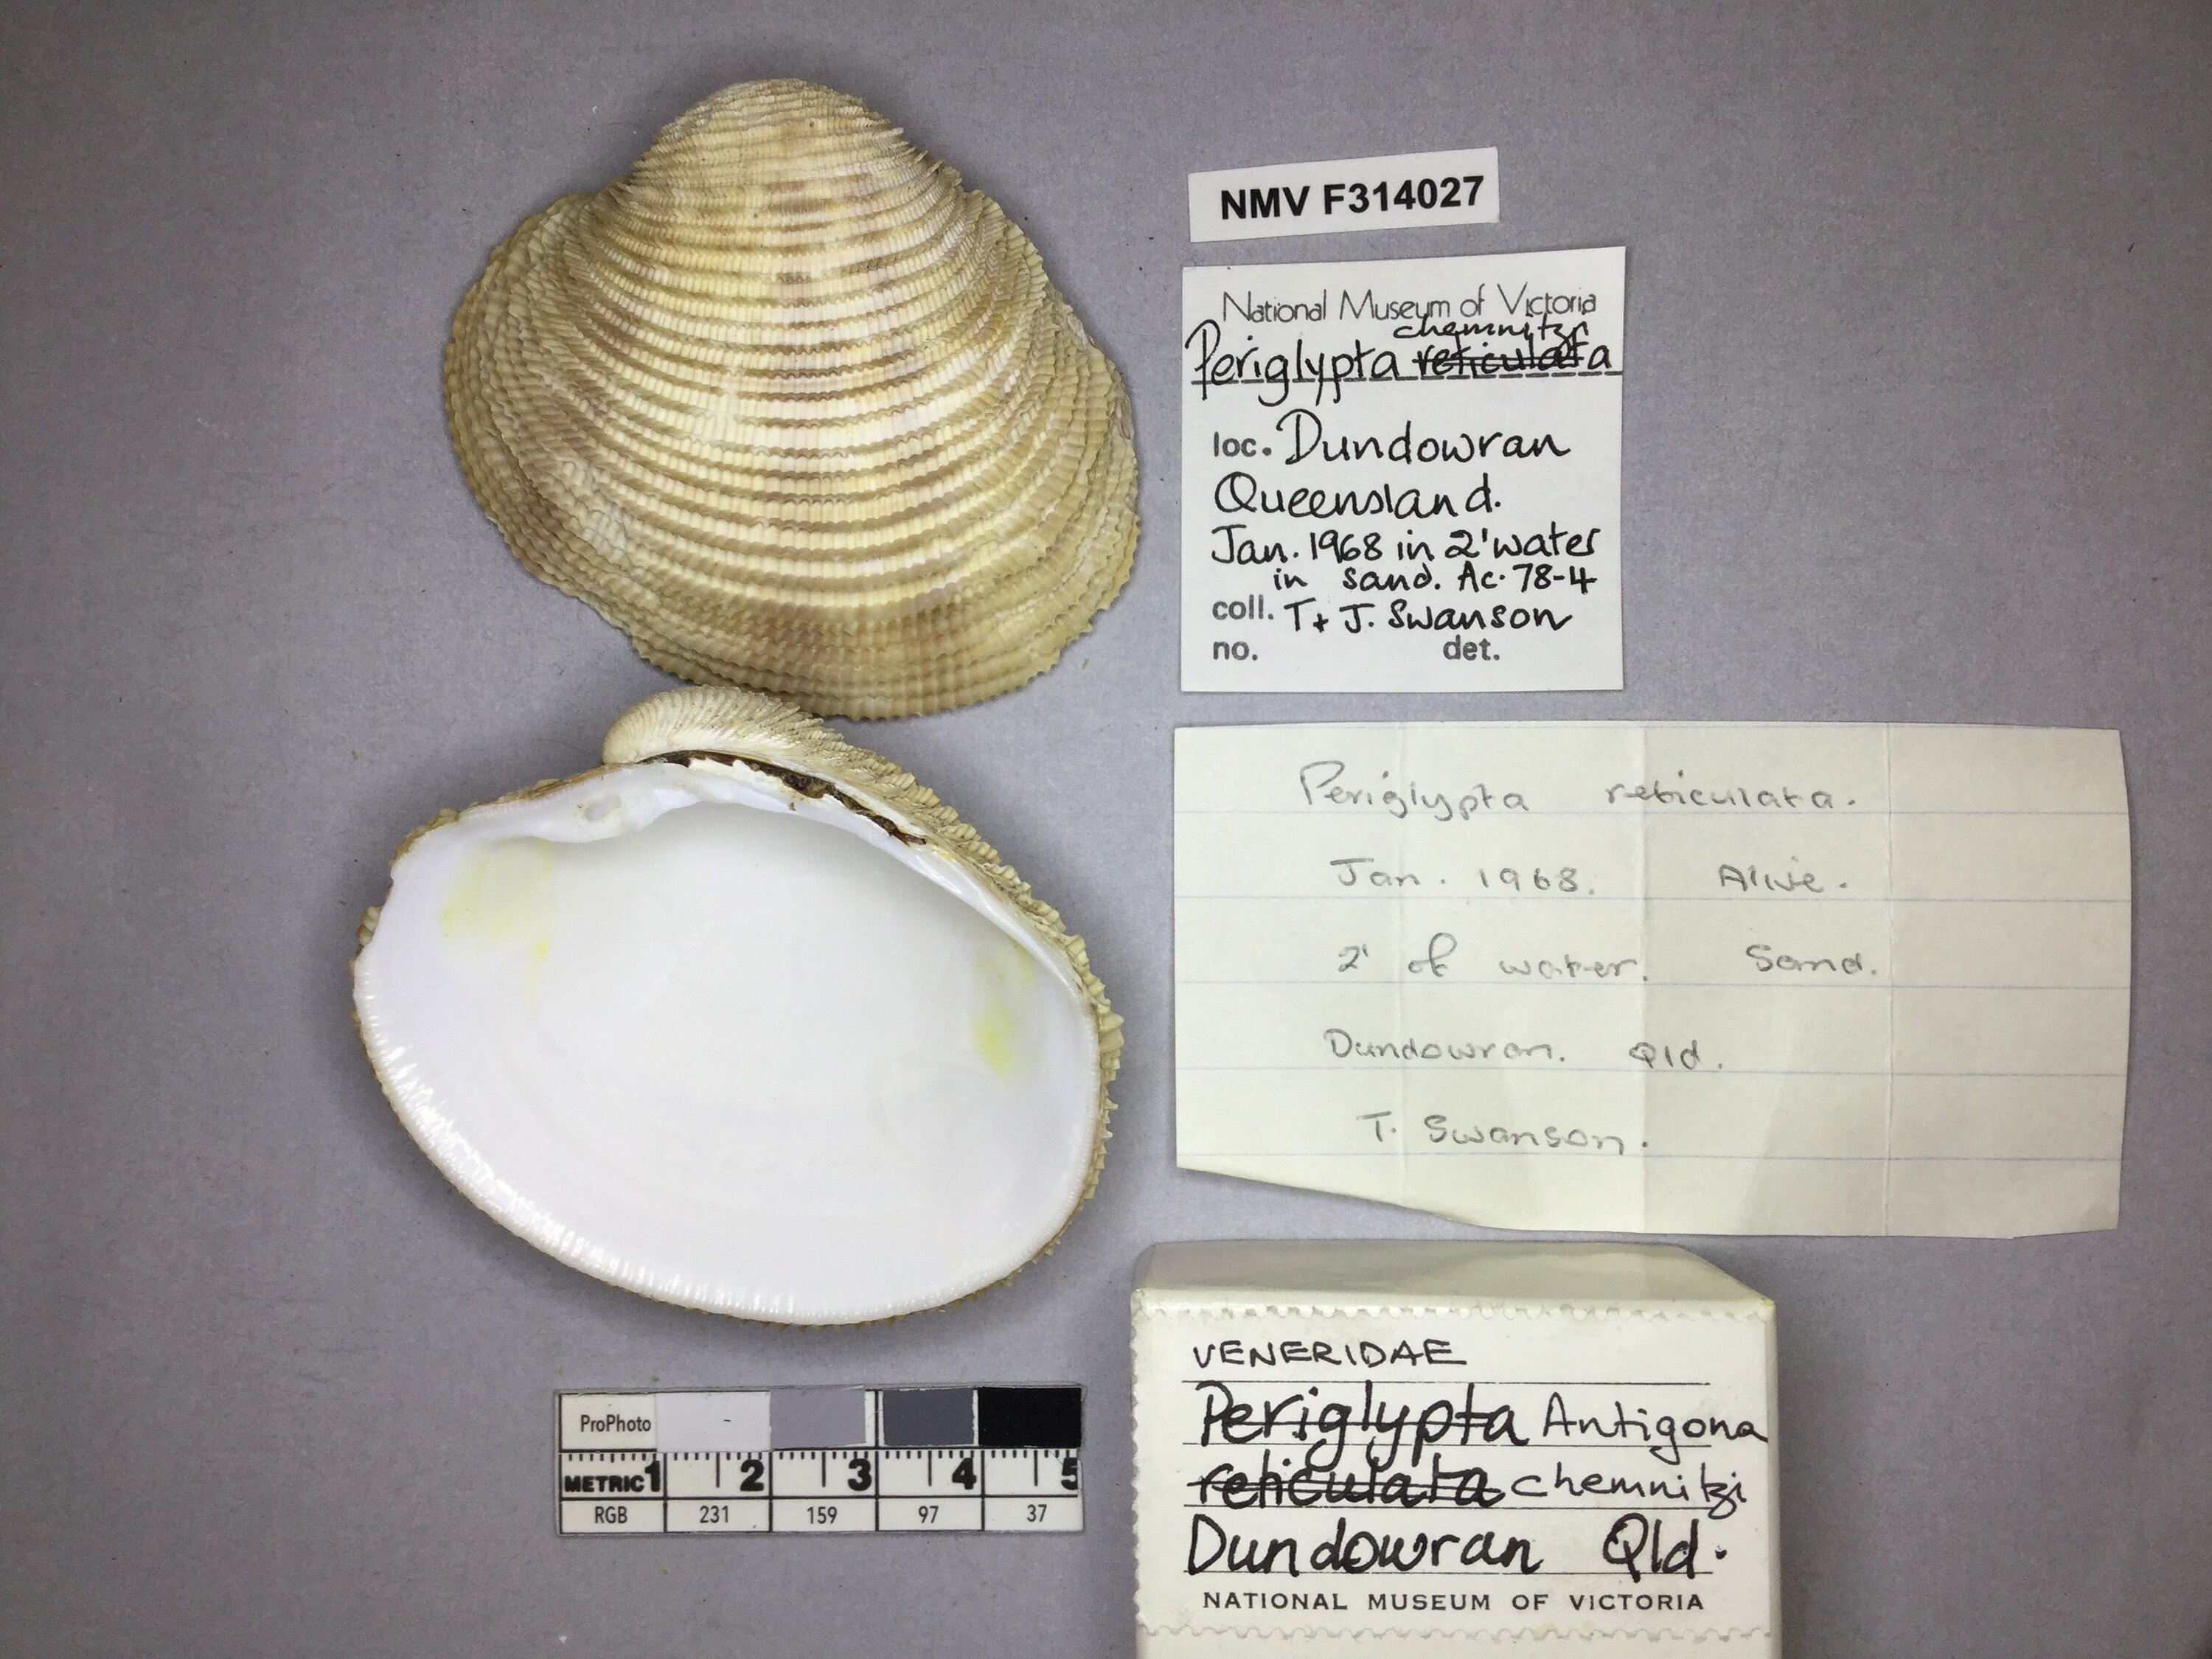 NMV F314027
National Museum of Victoria
chemnitzi
Periglypta reticulata
loc. Dundowran
Queensland.
Jan. 1968 in 2' water
in sand. Ac. 78-4
coll. T + J. Swanson
no. det.
Periglypta reticulata.
Jan. 1968. Alive.
2' of water. Sand.
Dundowran. Qld.
T. Swanson.
VENERIDAE
Periglypta Antigona
reticulata chemnitzi
Dundowran Qld.
NATIONAL MUSEUM OF VICTORIA
ProPhoto
METRIC 1 2 3 4 5
RGB 231 159 97 37